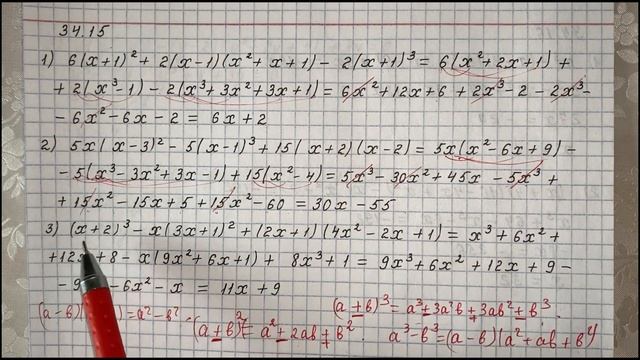 34.15
1) 6(x+1)² + 2(x-1)(x² + x + 1) - 2(x+1)³ = 6(x² + 2x + 1) +
+ 2(x³ - 1) - 2(x³ + 3x² + 3x + 1) = 6x² + 12x + 6 + 2x³ - 2 - 2x³ -
- 6x² - 6x - 2 = 6x + 2
2) 5x(x - 3)² - 5(x - 1)³ + 15(x + 2)(x - 2) = 5x(x² - 6x + 9) -
- 5(x³ - 3x² + 3x - 1) + 15(x² - 4) = 5x³ - 30x² + 45x - 5x³ +
+ 15x² - 15x + 5 + 15x² - 60 = 30x - 55
3) (x + 2)³ - x(3x + 1)² + (2x + 1)(4x² - 2x + 1) = x³ + 6x² +
+ 12x + 8 - x(9x² + 6x + 1) + 8x³ + 1 = 9x³ + 6x² + 12x + 9 -
- 9 - 6x² - x = 11x + 9
(a - в)( ) = a² - в²
(a ± в)² = a² ± 2aв + в²
(a ± в)³ = a³ ± 3a²в + 3aв² ± в³
a³ - в³ = (a - в)(a² + aв + в²)